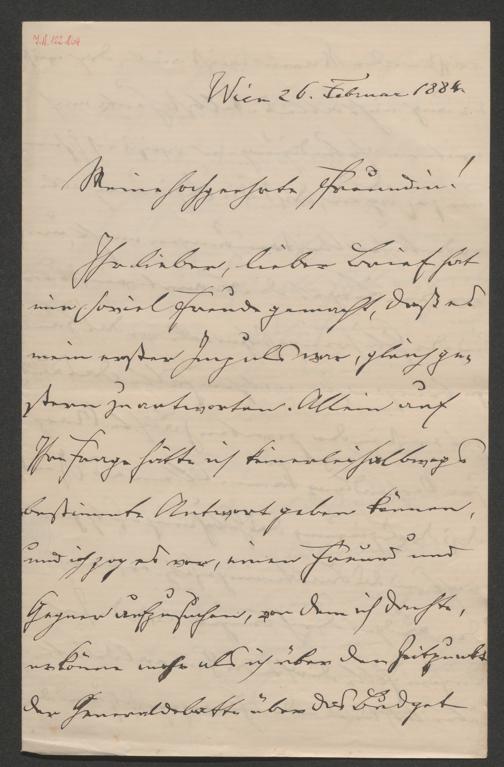 J.N. 122.804
Wien 26. Februar 1884.
Meine hochgeehrte Freundin!
Ihr lieber, lieber Brief hat
mir soviel Freude gemacht, daß es
mein erster Impuls war, gleich ge-
stern zu antworten. Allein auf
Ihre Frage hätte ich keinerlei halbwegs
bestimmte Antwort geben können,
und ich zog es vor, einen Freund und
Gegner aufzusuchen, von dem ich dachte,
er könne mehr als ich über den Zeitpunkt
der Generaldebatte über das Budget